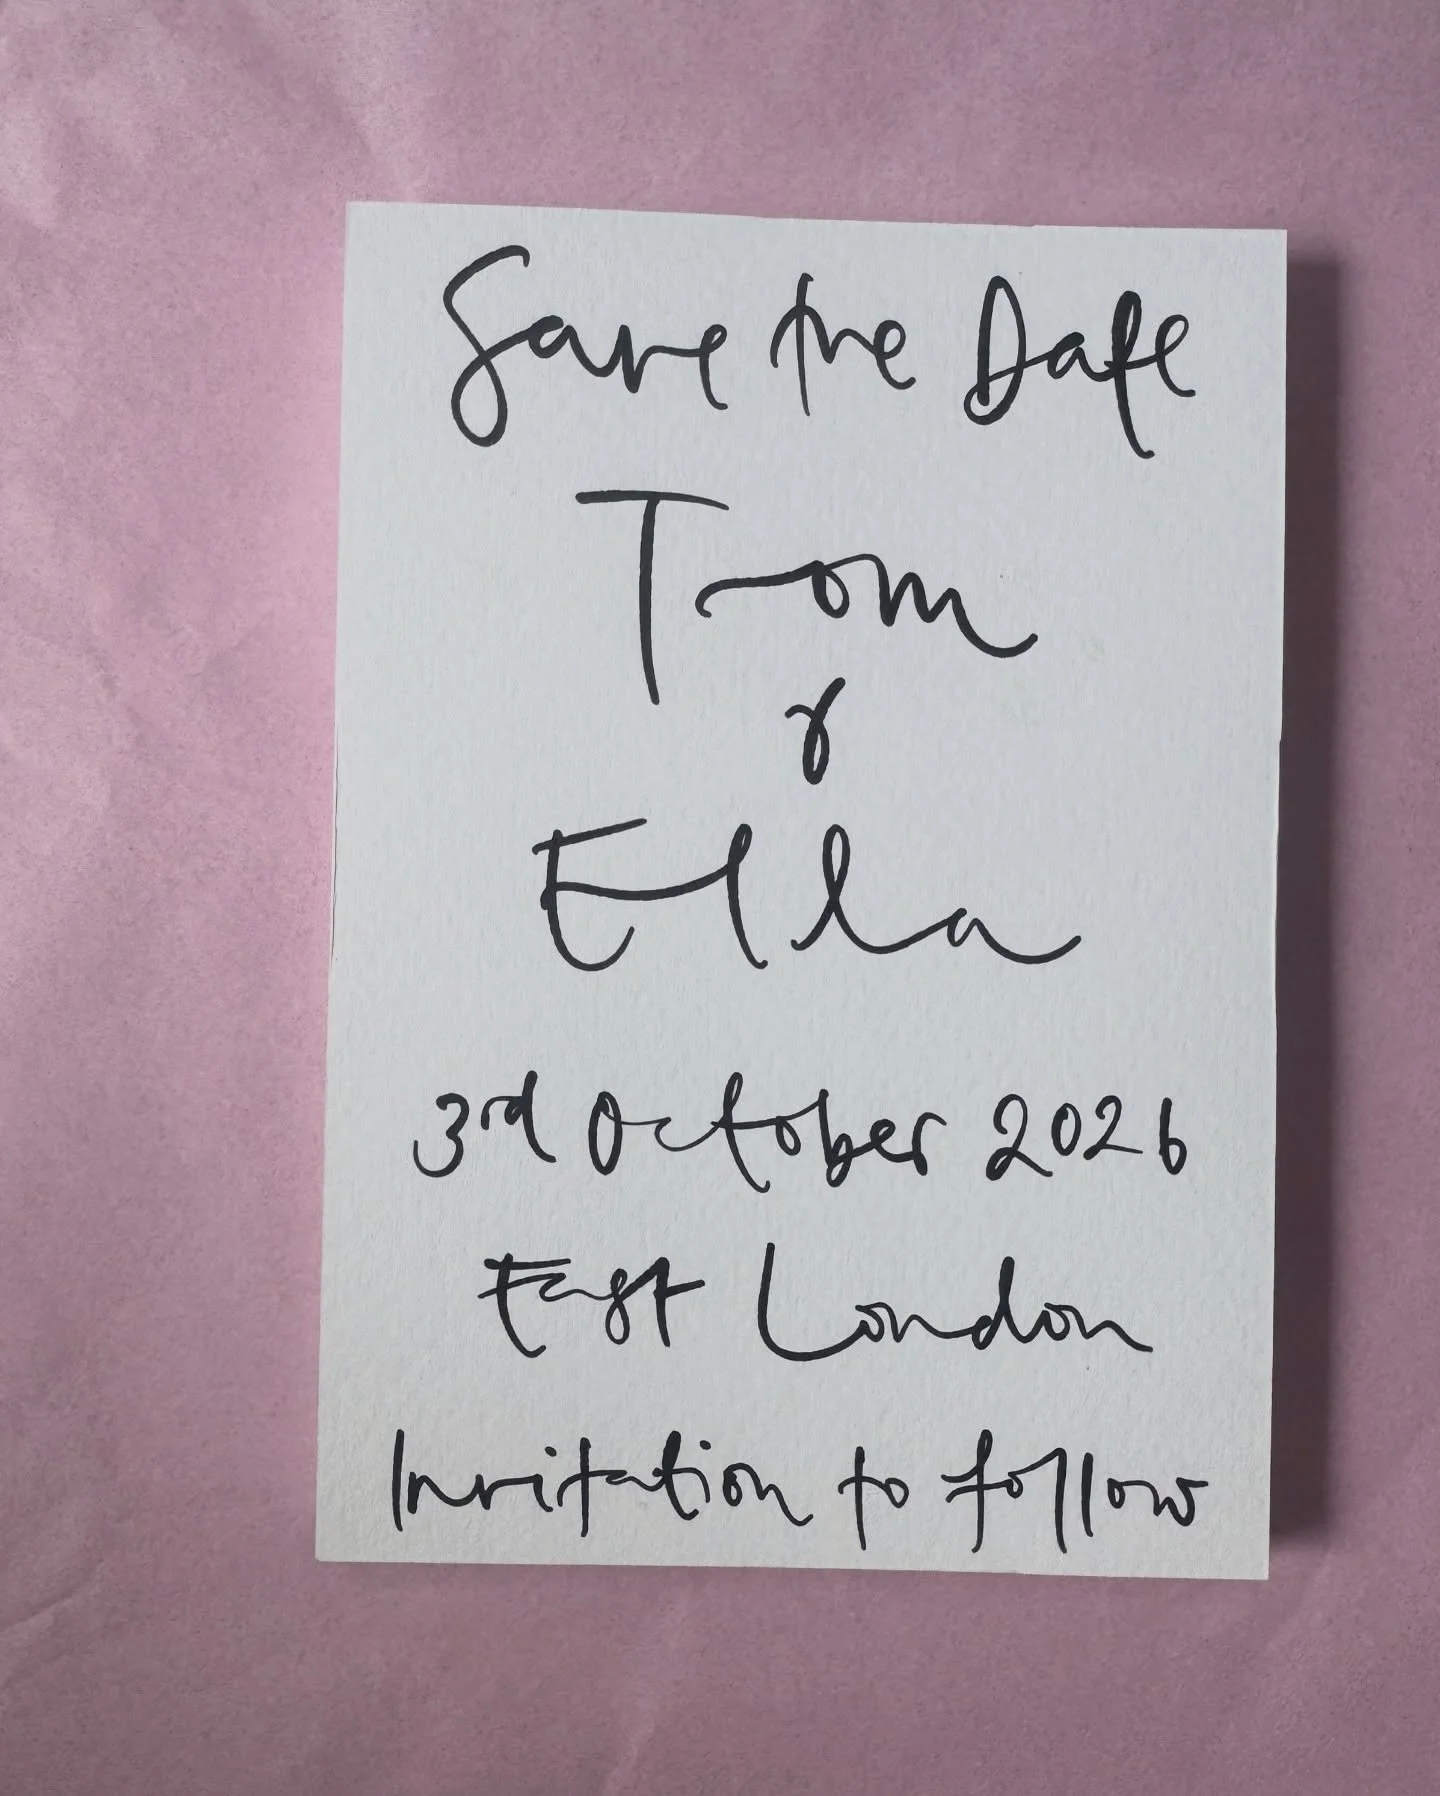 Save the Date
Tom
&
Ella
3rd October 2026
East London
Invitation to follow